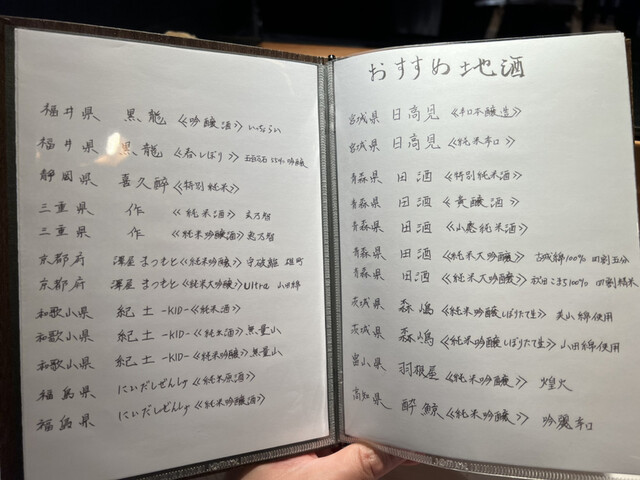 福井県 黒龍 《吟醸酒》 いっちょらい
福井県 黒龍 《春しぼり》 五百万石 55% 吟醸
静岡県 喜久酔 《特別純米》
三重県 作 《純米酒》 玄乃智
三重県 作 《純米吟醸酒》 恵乃智
京都府 澤屋まつもと 《純米吟醸》 守破離 雄町
京都府 澤屋まつもと 《純米大吟醸》 Ultra 山田錦
和歌山県 紀土 -KID- 《純米酒》
和歌山県 紀土 -KID- 《純米酒》 無量山
和歌山県 紀土 -KID- 《純米吟醸》 無量山
福島県 にいだしぜんしゅ 《純米原酒》
福島県 にいだしぜんしゅ 《純米吟醸酒》
おすすめ地酒
宮城県 日高見 《辛口本醸造》
宮城県 日高見 《純米辛口》
青森県 田酒 《特別純米》
青森県 田酒 《貴醸酒》
青森県 田酒 《山廃純米酒》
青森県 田酒 《純米大吟醸》 古城錦100% 四割五分
青森県 田酒 《純米大吟醸》 秋田こまち100% 四割精米
茨城県 森嶋 《純米吟醸しぼりたて生》 美山錦使用
茨城県 森嶋 《純米吟醸しぼりたて生》 山田錦使用
富山県 羽根屋 《純米吟醸》 煌火
高知県 酔鯨 《純米吟醸》 吟麗辛口